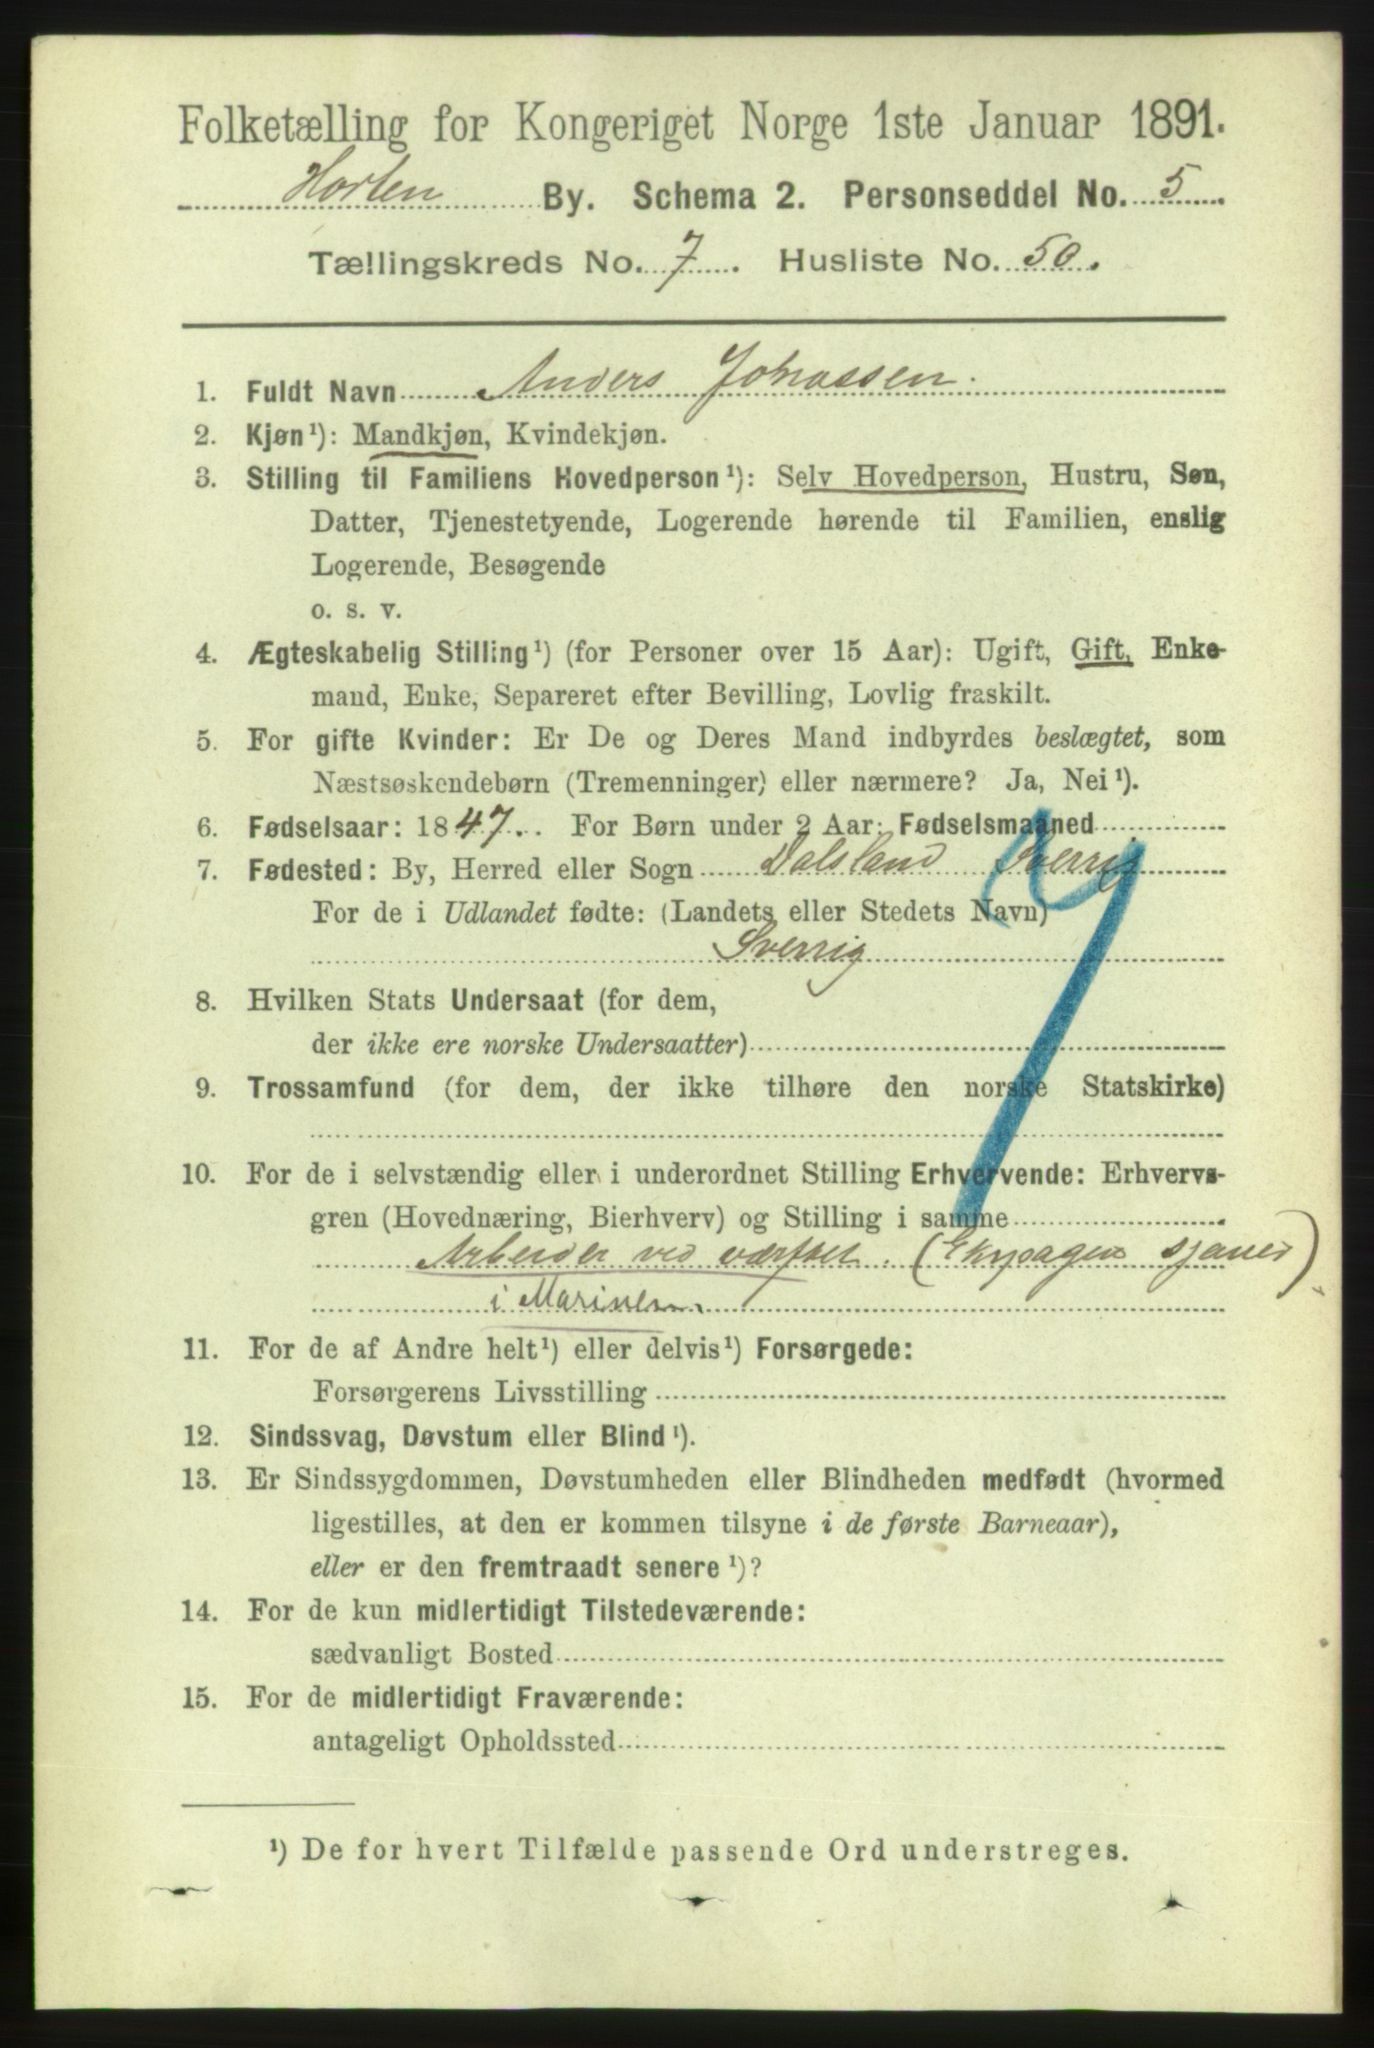 Folketælling for Kongeriget Norge 1ste Januar 1891.
Horten By. Schema 2. Personseddel No. 5
Tællingskreds No. 7. Husliste No. 50.
1. Fuldt Navn Anders Johassen.
2. Kjøn¹): Mandkjøn, Kvindekjøn.
3. Stilling til Familiens Hovedperson¹): Selv Hovedperson, Hustru, Søn,
Datter, Tjenestetyende, Logerende hørende til Familien, enslig
Logerende, Besøgende
o. s. v.
4. Ægteskabelig Stilling¹) (for Personer over 15 Aar): Ugift, Gift, Enke-
mand, Enke, Separeret efter Bevilling, Lovlig fraskilt.
5. For gifte Kvinder: Er De og Deres Mand indbyrdes beslægtet, som
Næstsøskendebørn (Tremenninger) eller nærmere? Ja, Nei¹).
6. Fødselsaar: 1847. For Børn under 2 Aar: Fødselsmaaned
7. Fødested: By, Herred eller Sogn Dalsland Sverrig
For de i Udlandet fødte: (Landets eller Stedets Navn)
Sverrig
8. Hvilken Stats Undersaat (for dem,
der ikke ere norske Undersaatter)
9. Trossamfund (for dem, der ikke tilhøre den norske Statskirke)
10. For de i selvstændig eller i underordnet Stilling Erhvervende: Erhvervs-
gren (Hovednæring, Bierhverv) og Stilling i samme
Arbeider ved værftet. (Ekvpagen sjaued)
i Marinen.
11. For de af Andre helt¹) eller delvis¹) Forsørgede:
Forsørgerens Livsstilling
12. Sindssvag, Døvstum eller Blind¹).
13. Er Sindssygdommen, Døvstumheden eller Blindheden medfødt (hvormed
ligestilles, at den er kommen tilsyne i de første Barneaar),
eller er den fremtraadt senere¹)?
14. For de kun midlertidigt Tilstedeværende:
sædvanligt Bosted
15. For de midlertidigt Fraværende:
antageligt Opholdssted
¹) De for hvert Tilfælde passende Ord understreges.